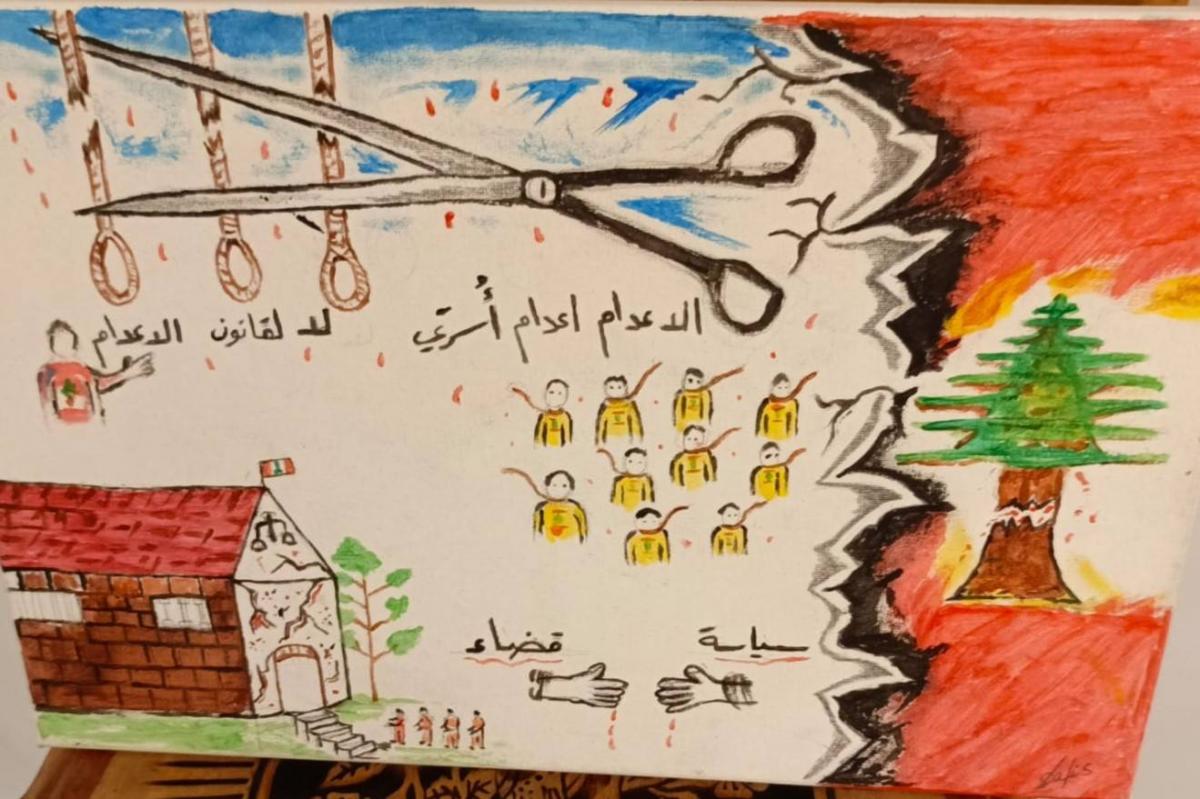 الاعدام اعدام أُسرتي
لا لقانون الاعدام
سياسة
قضاء